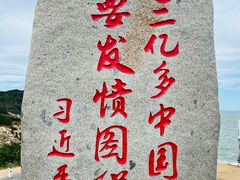 亿多中国
要发愤图
习近平